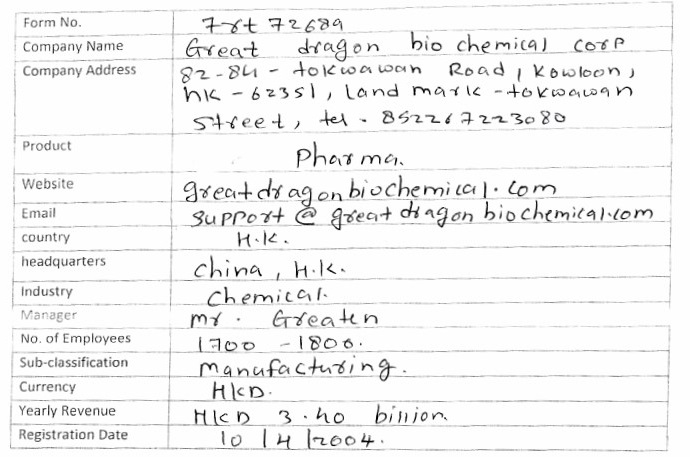 Form No. 7rt 72689
Company Name Great dragon bio chemical corp
Company Address 82-84 - tokwawan Road, Kowloon,
hk - 62351, land mark - tokwawan
street, tel. 852267223080
Product Pharma.
Website greatdragonbiochemical.com
Email support@greatdragonbiochemical.com
country H.K.
headquarters china, H.K.
Industry Chemical.
Manager mr. Greaten
No. of Employees 1700 - 1800.
Sub-classification manufacturing.
Currency HKD.
Yearly Revenue HKD 3.40 billion.
Registration Date 10/4/2004.